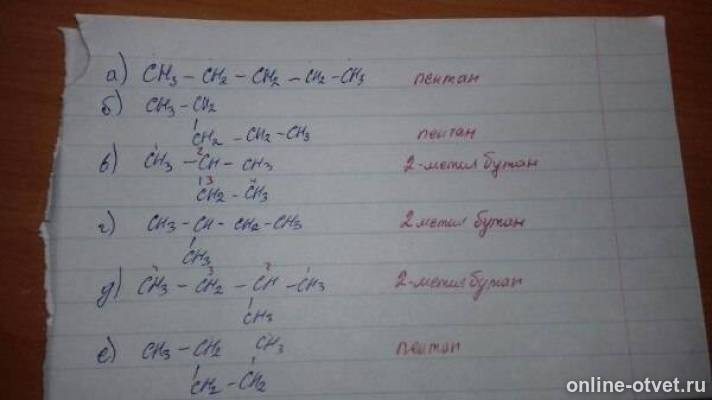 а) CH3 – CH2 – CH2 – CH2 – CH3 пентан
б) CH3 – CH2
CH2 – CH2 – CH3 пентан
в) 1 2
CH3 – CH – CH3 2-метил бутан
3 4
CH2 – CH3
г) CH3 – CH – CH2 – CH3 2 метил бутан
CH3
4 3 2 1
д) CH3 – CH2 – CH – CH3 2-метил бутан
CH3
е) CH3 – CH2 CH3 пентан
CH2 – CH2
online-otvet.ru